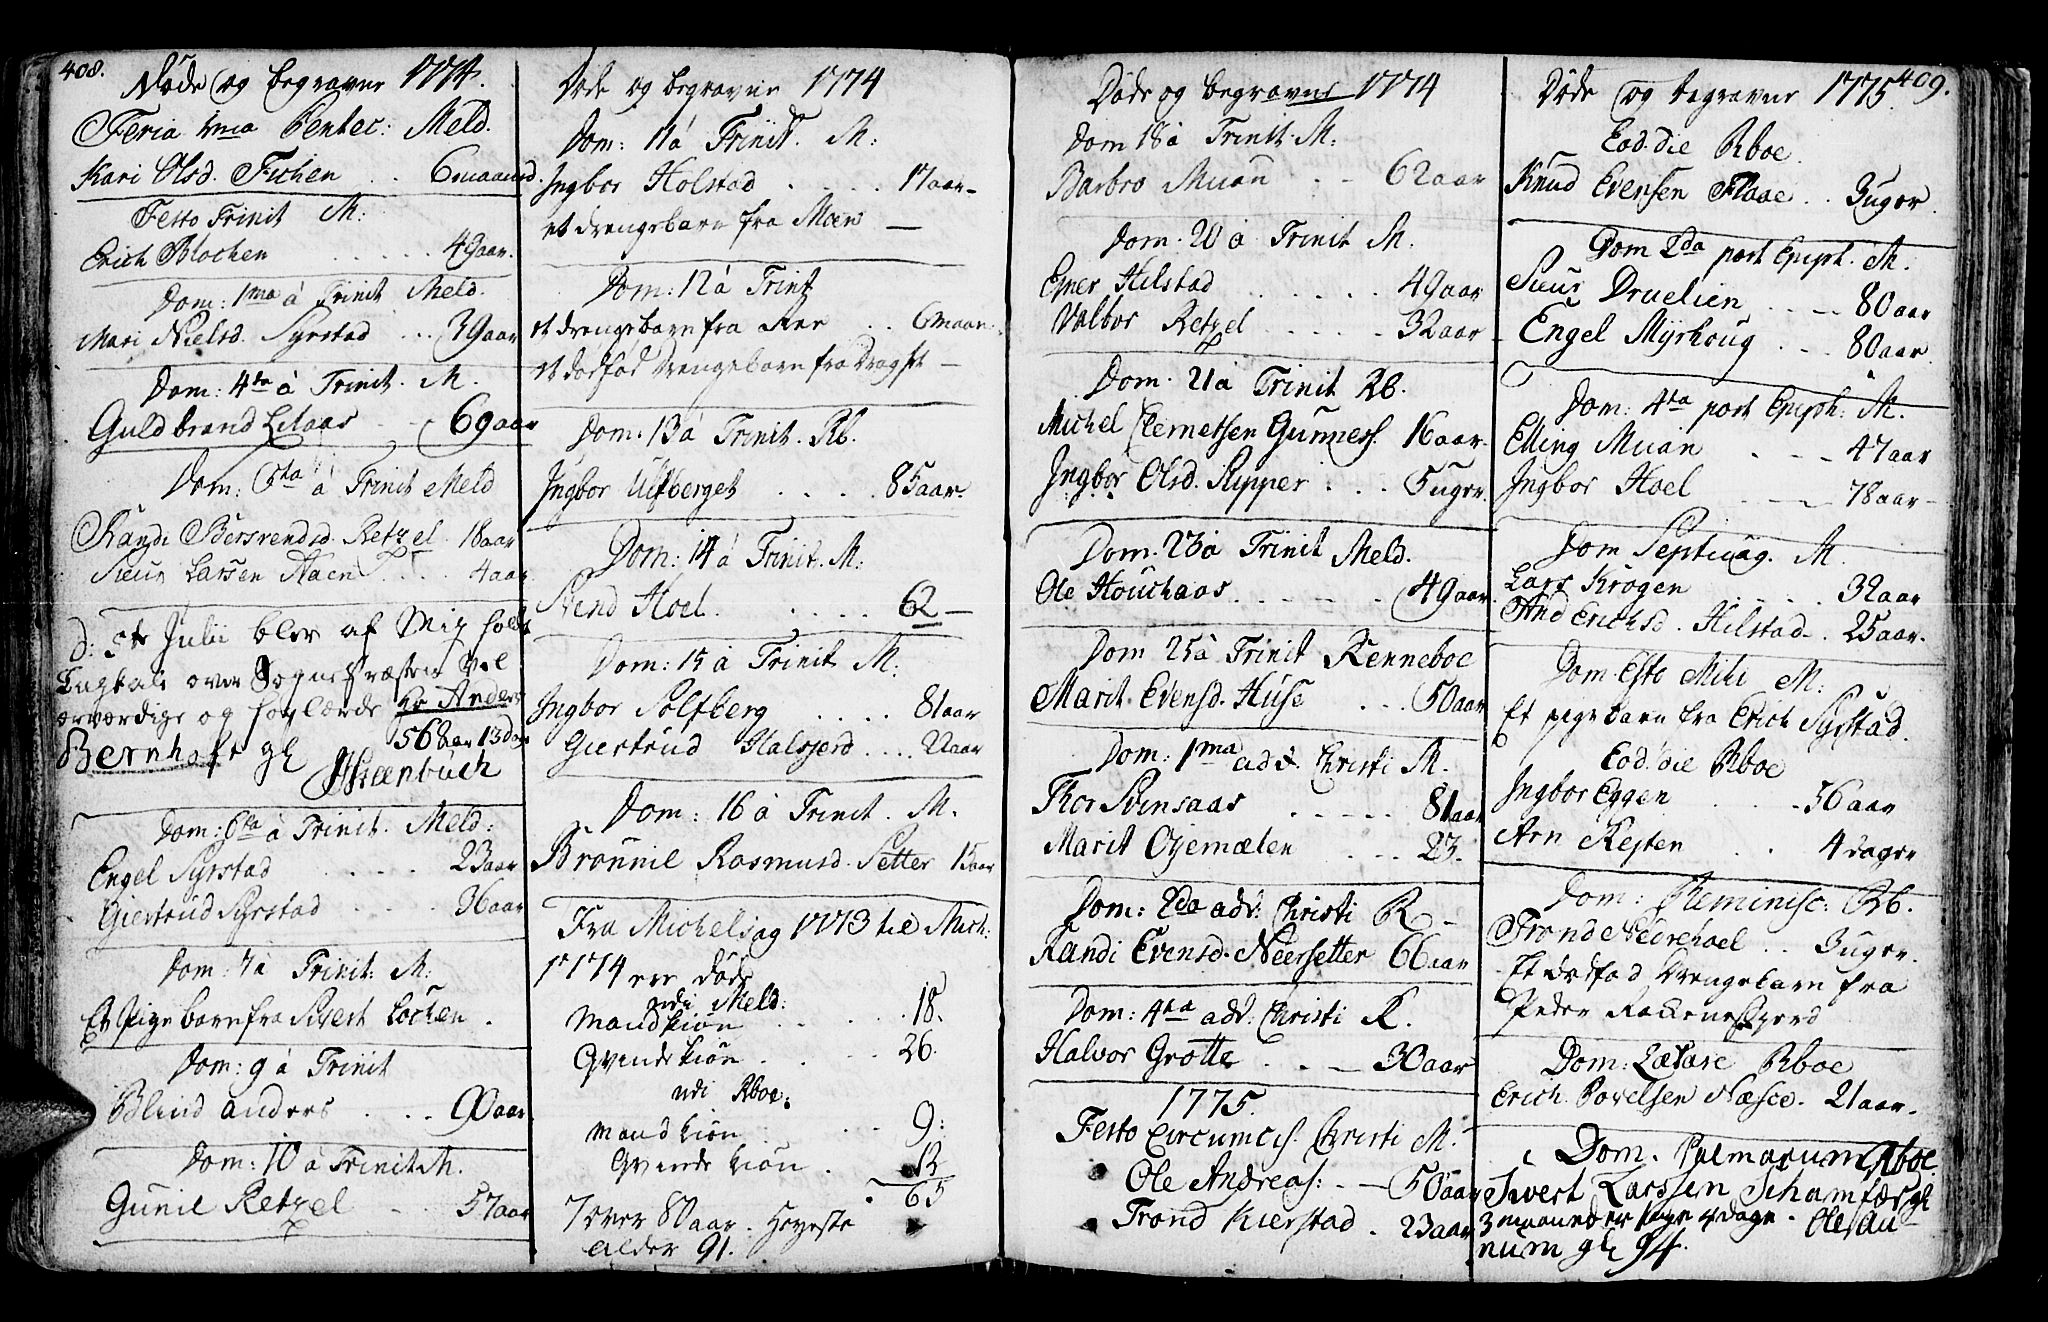 408.
Døde og begravne 1774.
Feria 2ma Pentec: Meld.
Kari Olsd. Fichen . . 6 maaned.
Festo Trinit M:
Erich Blochen . . . . . 49 aar.
Dom: 1ma à Trinit Meld.
Mari Nielsd. Syrstad . . . 39 aar
Dom: 4ta à Trinit. M.
Guldbrand Lilaas - 69 aar
Dom: 5ta à Trinit Meld
Randi Bersvendsd. Retzel 18 aar
Siur Larsen Aaen . . . . 4 aar
d: 5te Julii blev af Mig holdt
Ligtale over Sogne Præsten Vel
ærværdige og høylærde Hr Anders
Bernhoft gl 56 aar 13 dage
JSteenbuch
Dom: 6ta à Trinit. Meld:
Engel Syrstad . . . . 23 aar
Giertrud Syrstad . . . . 36 aar
Dom: 7 à Trinit: M:
Et Pigebarn fra Sivert Lochen .
Dom: 9 à Trinit
Blind Anders . . . . 90 aar
Dom: 10 à Trinit M.
Gunil Retzel - . . 57 aar
Døde og begravne 1774
Dom: 11 à Trinit. M:
Ingbor Holstad . . . . . 17 aar-
et drengebarn fra Moen —
Dom: 12 à Trinit
et drengebarn fra Aen . . 6 maan.
et dødfød drengebarn fra Dragset —
Dom: 13 à Trinit. Rb.
Ingbor Ulfberget . . . . 85 aar.
Dom: 14 à Trinit. M:
Svend Hoel. . . . . 62 —
Dom: 15 à Trinit M:
Ingbor Solfberg . . . . 81 aar
Giertrud Halsgerd . . . 22 aar
Dom: 16 à Trinit. M.
Brønnil Rasmusd. Setter 15 aar
Fra Michelsdag 1773 til Mich:
1774 ere døde
udi Meld:
Mandkiøn . . . . . . 18.
Qvindekiøn . . . . . 26.
udi Rboe:
Mandkiøn . . . . 9:
Qvindekiøn . 12
65
7 over 80 aar. Høyeste
Alder 91.
Døde og begravne 1774
Dom 18 à Trinit. M:
Barbro Muan . - 62 aar
Dom. 20 à Trinit M.
Ener Hilstad . . . . . . 49 aar
Valbor Retzel . . . . . 32 aar
Dom. 21 à Trinit Rb.
Michel Clemetsen Gunness. 16 aar.
Ingbor Olsd. Ripper . . . 5 uger.
Dom. 23 à Trinit Meld.
Ole Houchaas . . . . . . 49 aar.
Dom 25 à Trinit Renneboe
Marit Evensd. Huse . . . 50 aar
Dom: 1ma adv. Christi M.
Thor Svensaas . . . . . 81 aar
Marit Oyemælen . . . 23.
Dom: 2da adv: Christi R -
Randi Evensd. Neersetter 66 aar
Dom: 4ta adv: Christi R.
Halvor Grotte . . . 30 aar
1775.
Festo Circumcis. Christi M.
Ole Andreas: - - 50 aar
Trond Kierstad . 23 aar
Døde og begravne 1775.
409.
Eod. die Rboe.
Knud Evensen Flaae . . 3 uger.
Dom 2da post Epiph. M.
Siur Druelien . . . . 80 aar
Engel Myrhoug . . . 80 aar
Dom: 4ta post Epiph: M.
Elling Muan . . . 47 aar
Ingbor Hoel . . . 78 aar -
Dom Septuag. M.
Lars Krogen . . . . . 32 aar
And Erichsd. Hilstad . . 25 aar.
Dom Esto Mihi M:
Et pigebarn fra Erich Syrstad.
Eod. die Rboe
Ingbor Eggen . . . . 56 aar
Arn Resten . . 4 dager
Dom: Reminisc: Rb.
Trond Nedrehoel . . 3 uger.
Et dødfød drengebarn fra
Peder Rokkenesgierd
Dom: Lætare Rboe
Erich Povelsen Næsee. 21 aar.
Dom. Palmarum Rboe
Sivert Larssen Schamfær gl
3 maaneder 1 uge 4 dage. Ole Au
num gl 94.